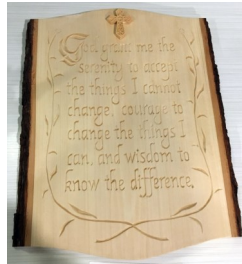 God, grant me the
serenity to accept
the things I cannot
change, courage to
change the things I
can, and wisdom to
know the difference.